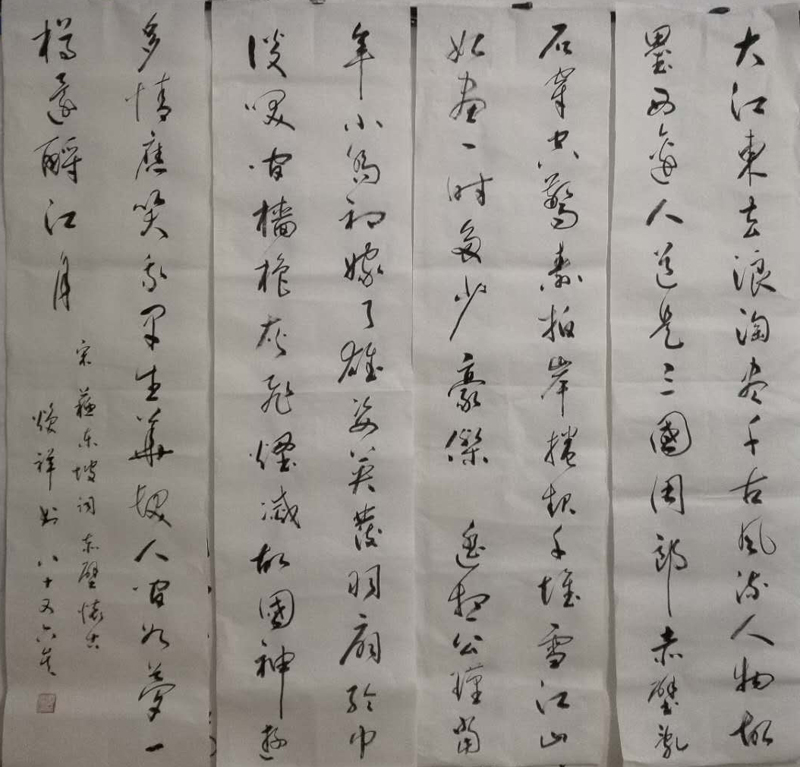 大江東去浪淘尽千古風流人物故
壘西邊人道是三國周郎赤壁亂
石穿空驚濤拍岸捲起千堆雪江山
如畫一時多少豪傑 遙想公瑾當
年小喬初嫁了雄姿英發羽扇綸巾
談笑間檣櫓灰飛煙滅故國神遊
多情應笑我早生華髮人間如夢一
樽還酹江月
宋蘇東坡詞赤壁懷古
煥祥书八十又六